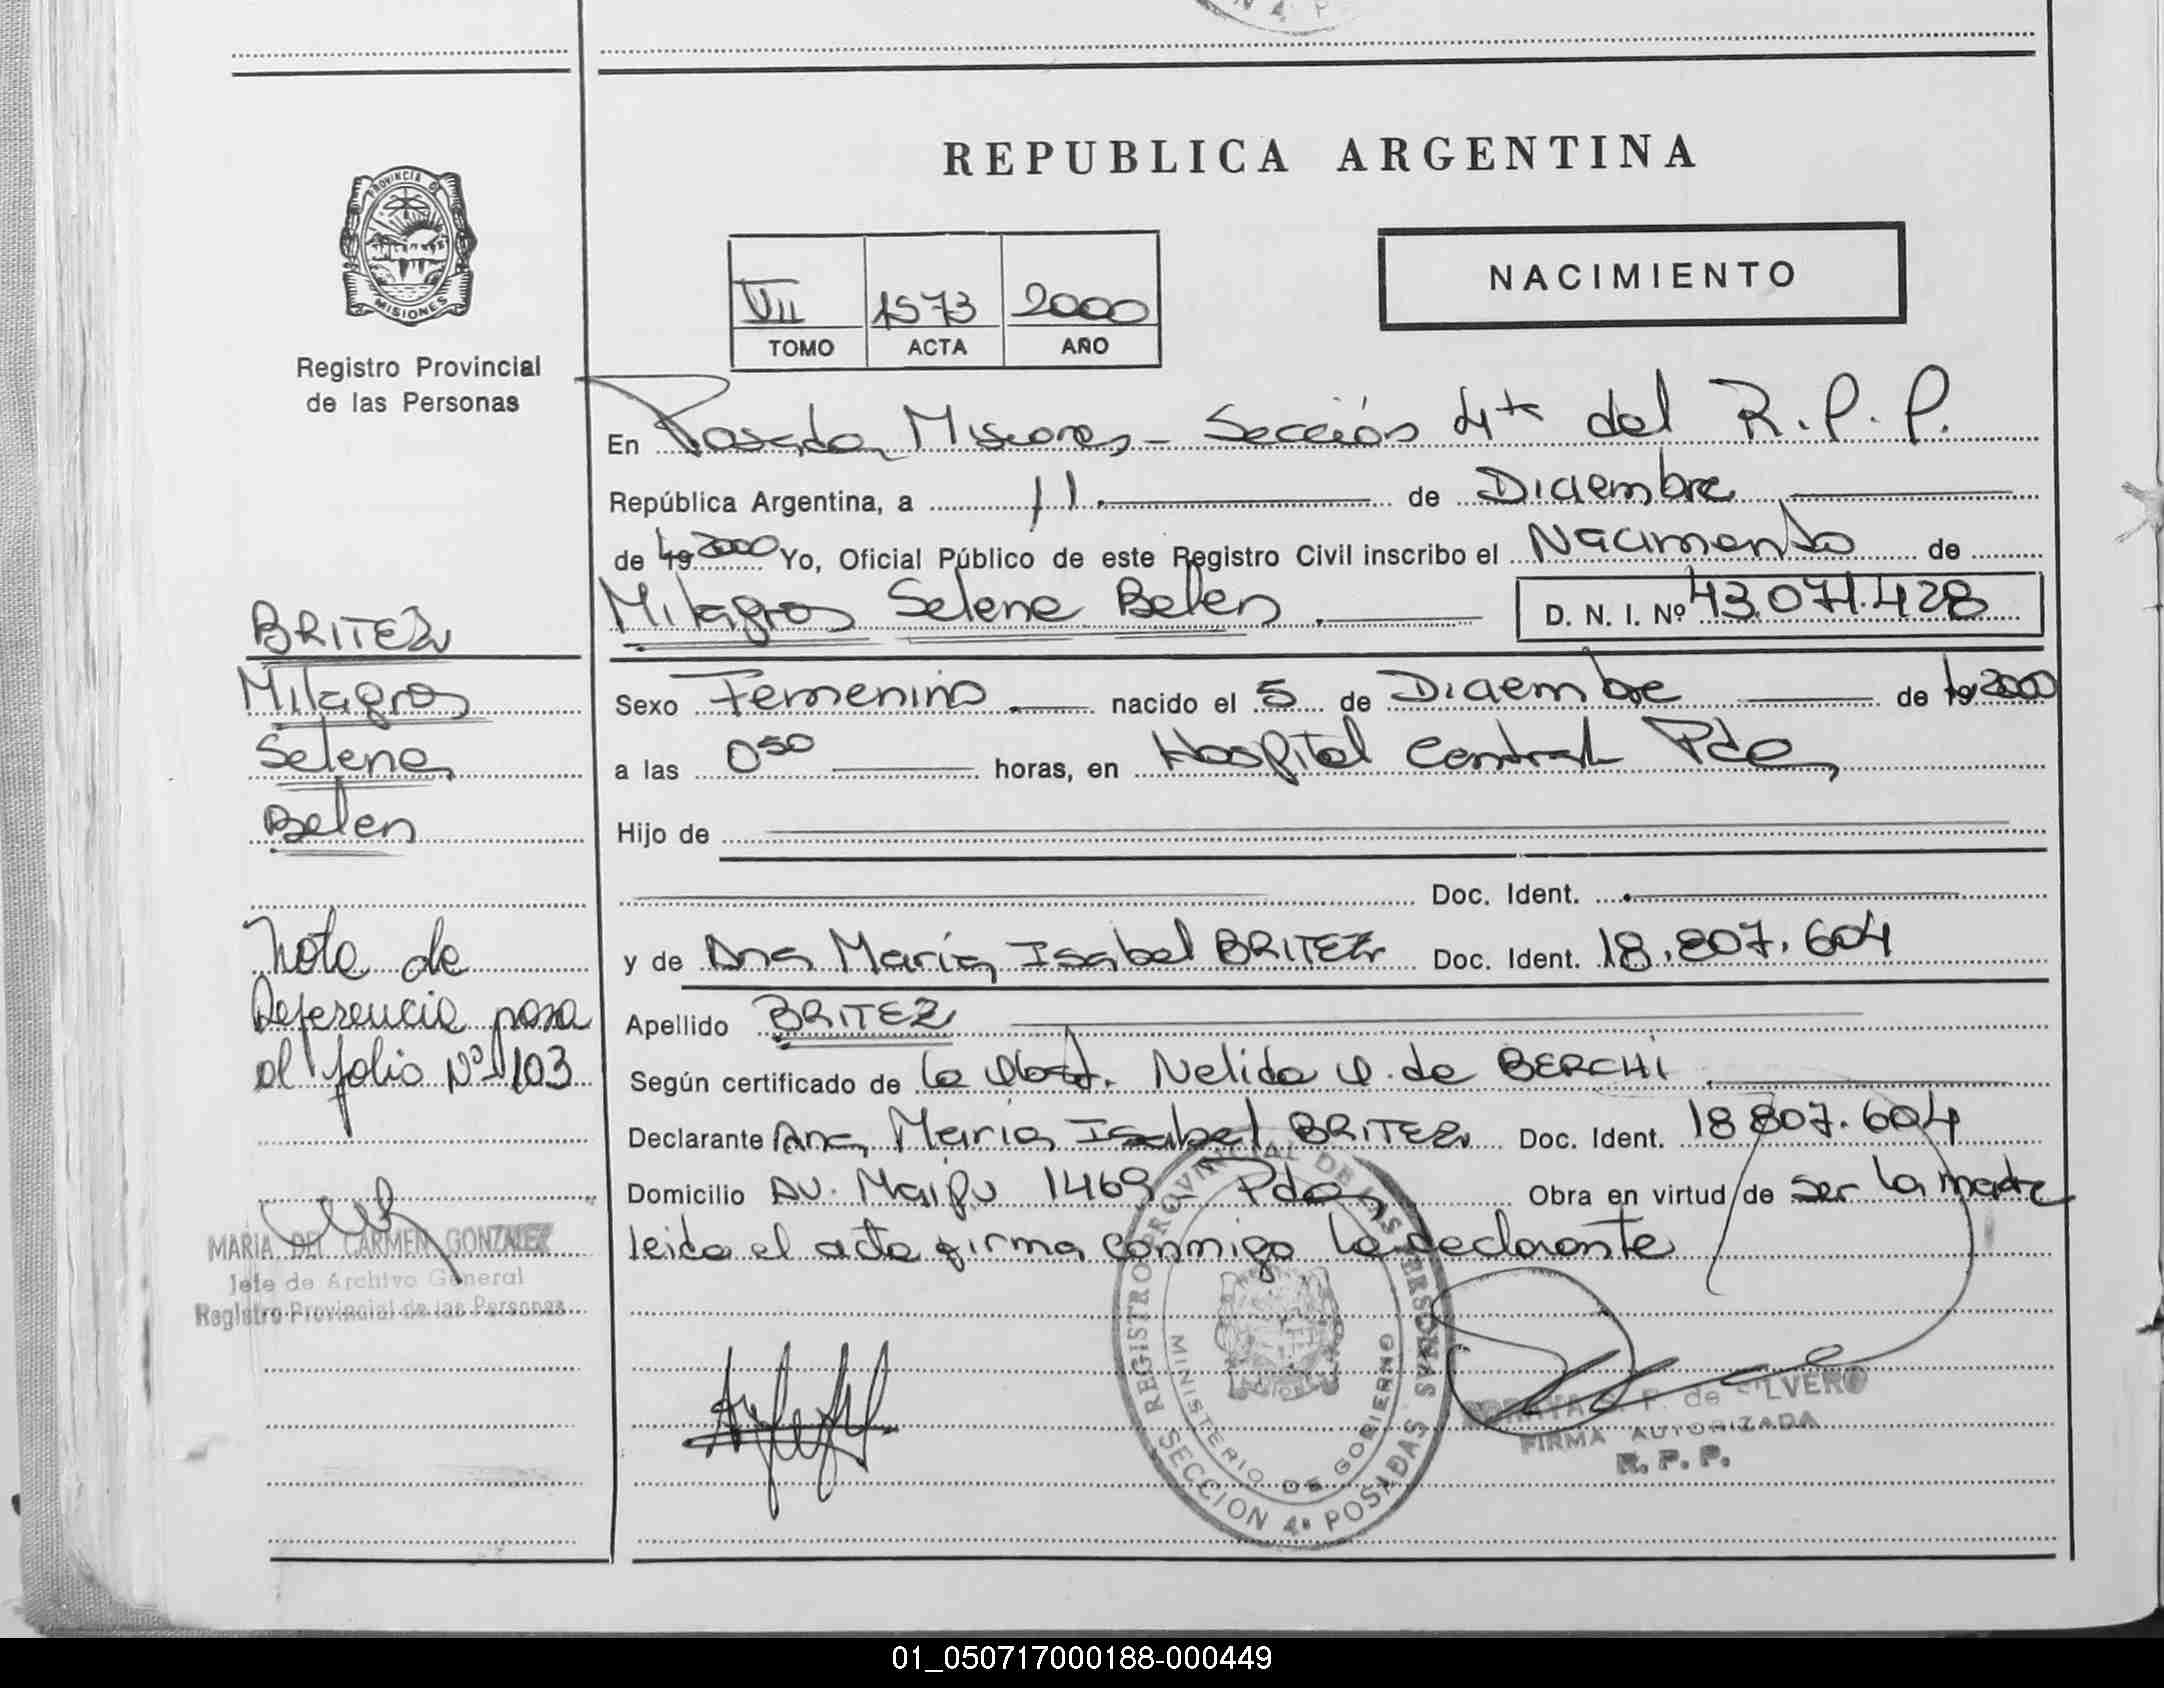 REPUBLICA ARGENTINA
PROVINCIA DE
MISIONES
Registro Provincial
de las Personas
VII 1573 2000
TOMO ACTA AÑO
NACIMIENTO
En Posadas Misiones - Sección 4ta del R.P.P.
República Argentina, a 11. de Diciembre
de 19 2000 Yo, Oficial Público de este Registro Civil inscribo el Nacimiento de
Milagros Selene Belen D. N. I. Nº 43.071.428
BRITEZ
Milagros
Selene
Belen
Sexo Femenino nacido el 5 de Diciembre de 19 2000
a las 0 50 horas, en Hospital Central Pdas
Hijo de
Doc. Ident.
y de Ana María Isabel BRITEZ Doc. Ident. 18.807.604
Apellido BRITEZ
Según certificado de la Obst. Nelida de BERCHI
Declarante Ana María Isabel BRITEZ Doc. Ident. 18 807.604
Domicilio AV. Maipu 1469 - Pdas Obra en virtud de ser la madre
leida el acta firma conmigo la declarante
Nota de
Referencia pasa
al folio Nº 103
MARIA DEL CARMEN GONZALEZ
Jefe de Archivo General
Registro Provincial de las Personas
REGISTRO PROVINCIAL DE LAS PERSONAS
MINISTERIO DE GOBIERNO
SECCION 4ª POSADAS
de SILVERO
FIRMA AUTORIZADA
R. P. P.
01_050717000188-000449